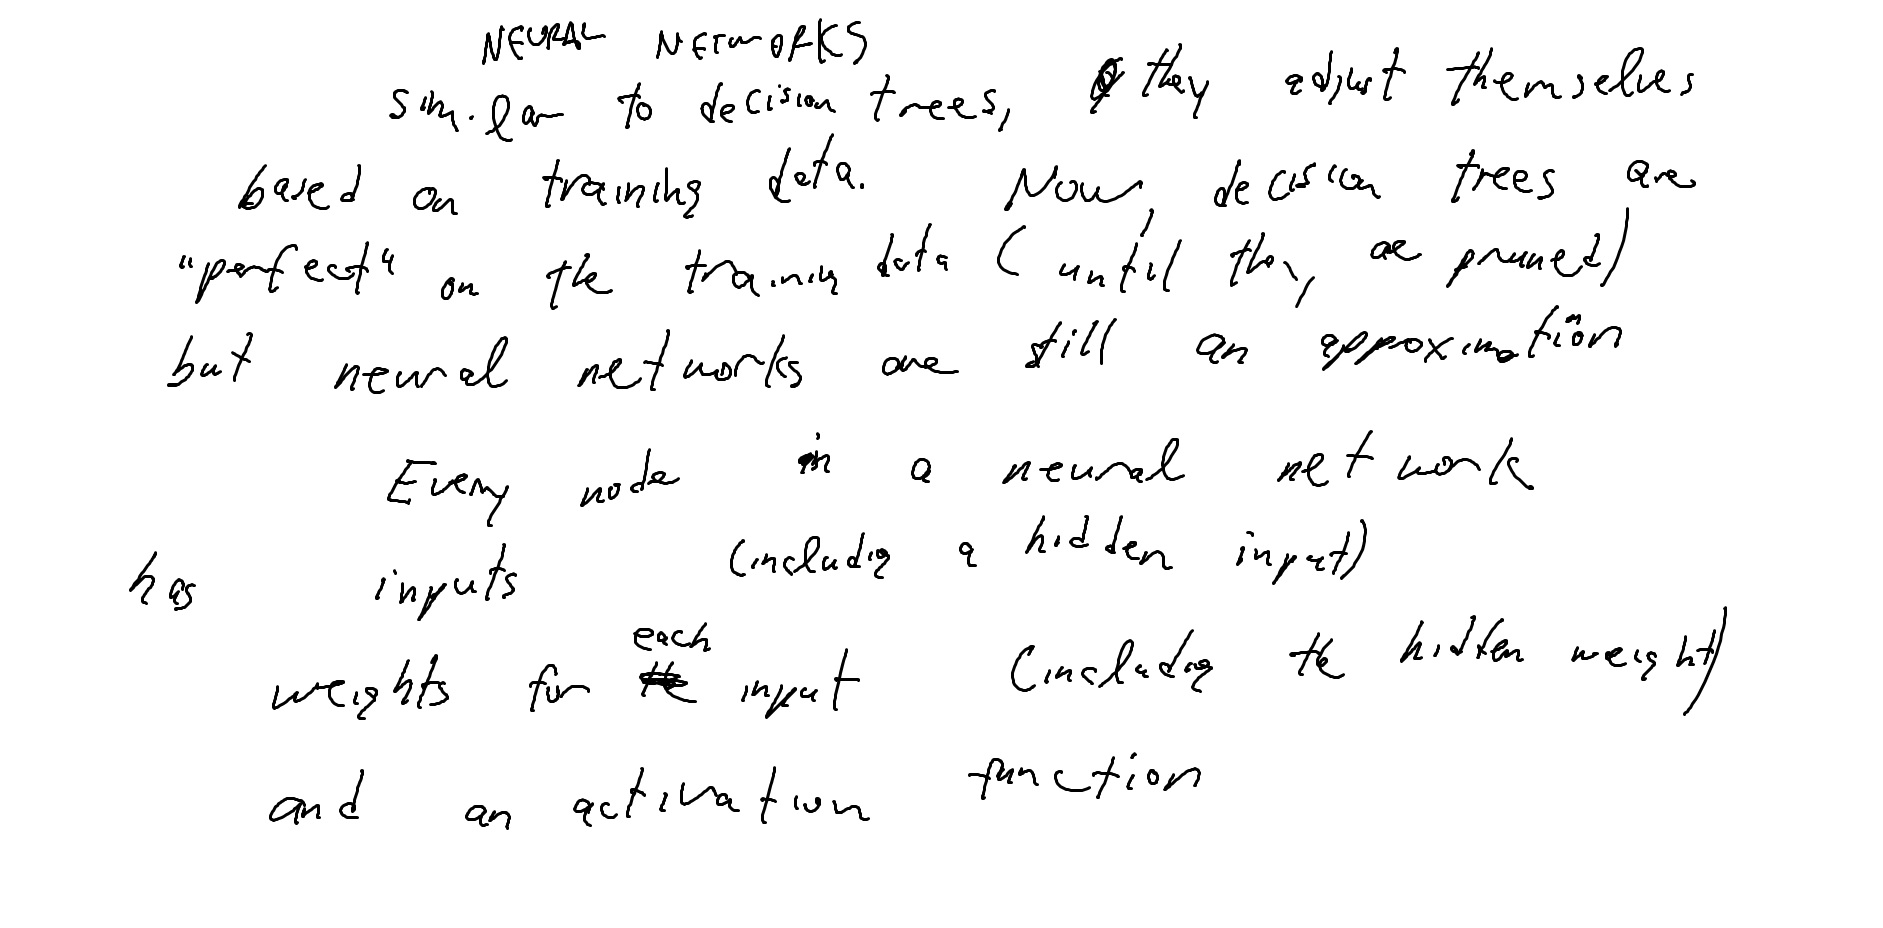 NEURAL NETWORKS
similar to decision trees, they adjust themselves
based on training data. Now, decision trees are
"perfect" on the training data (until they are pruned)
but neural networks are still an approximation
Every node in a neural network
has inputs (including a hidden input)
weights for each input (including the hidden weight)
and an activation function